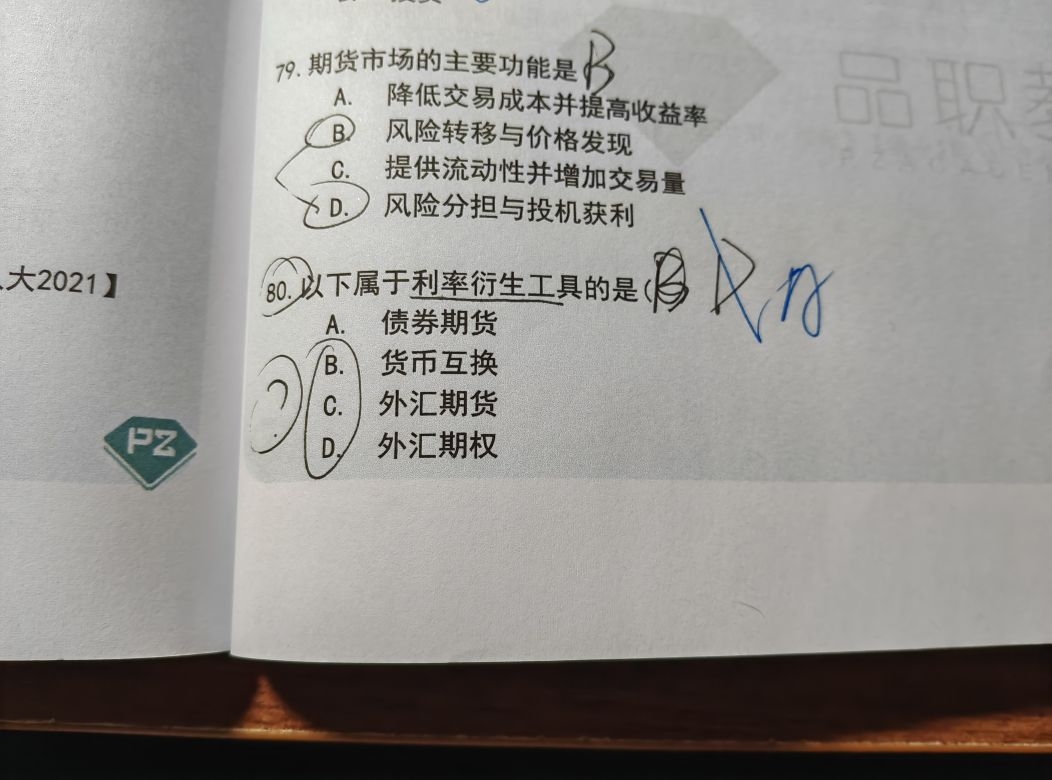 79. 期货市场的主要功能是 B
A. 降低交易成本并提高收益率
B. 风险转移与价格发现
C. 提供流动性并增加交易量
D. 风险分担与投机获利
大2021】
80. 以下属于利率衍生工具的是( B D
A. 债券期货
?
B. 货币互换
C. 外汇期货
D. 外汇期权
PZ
品职